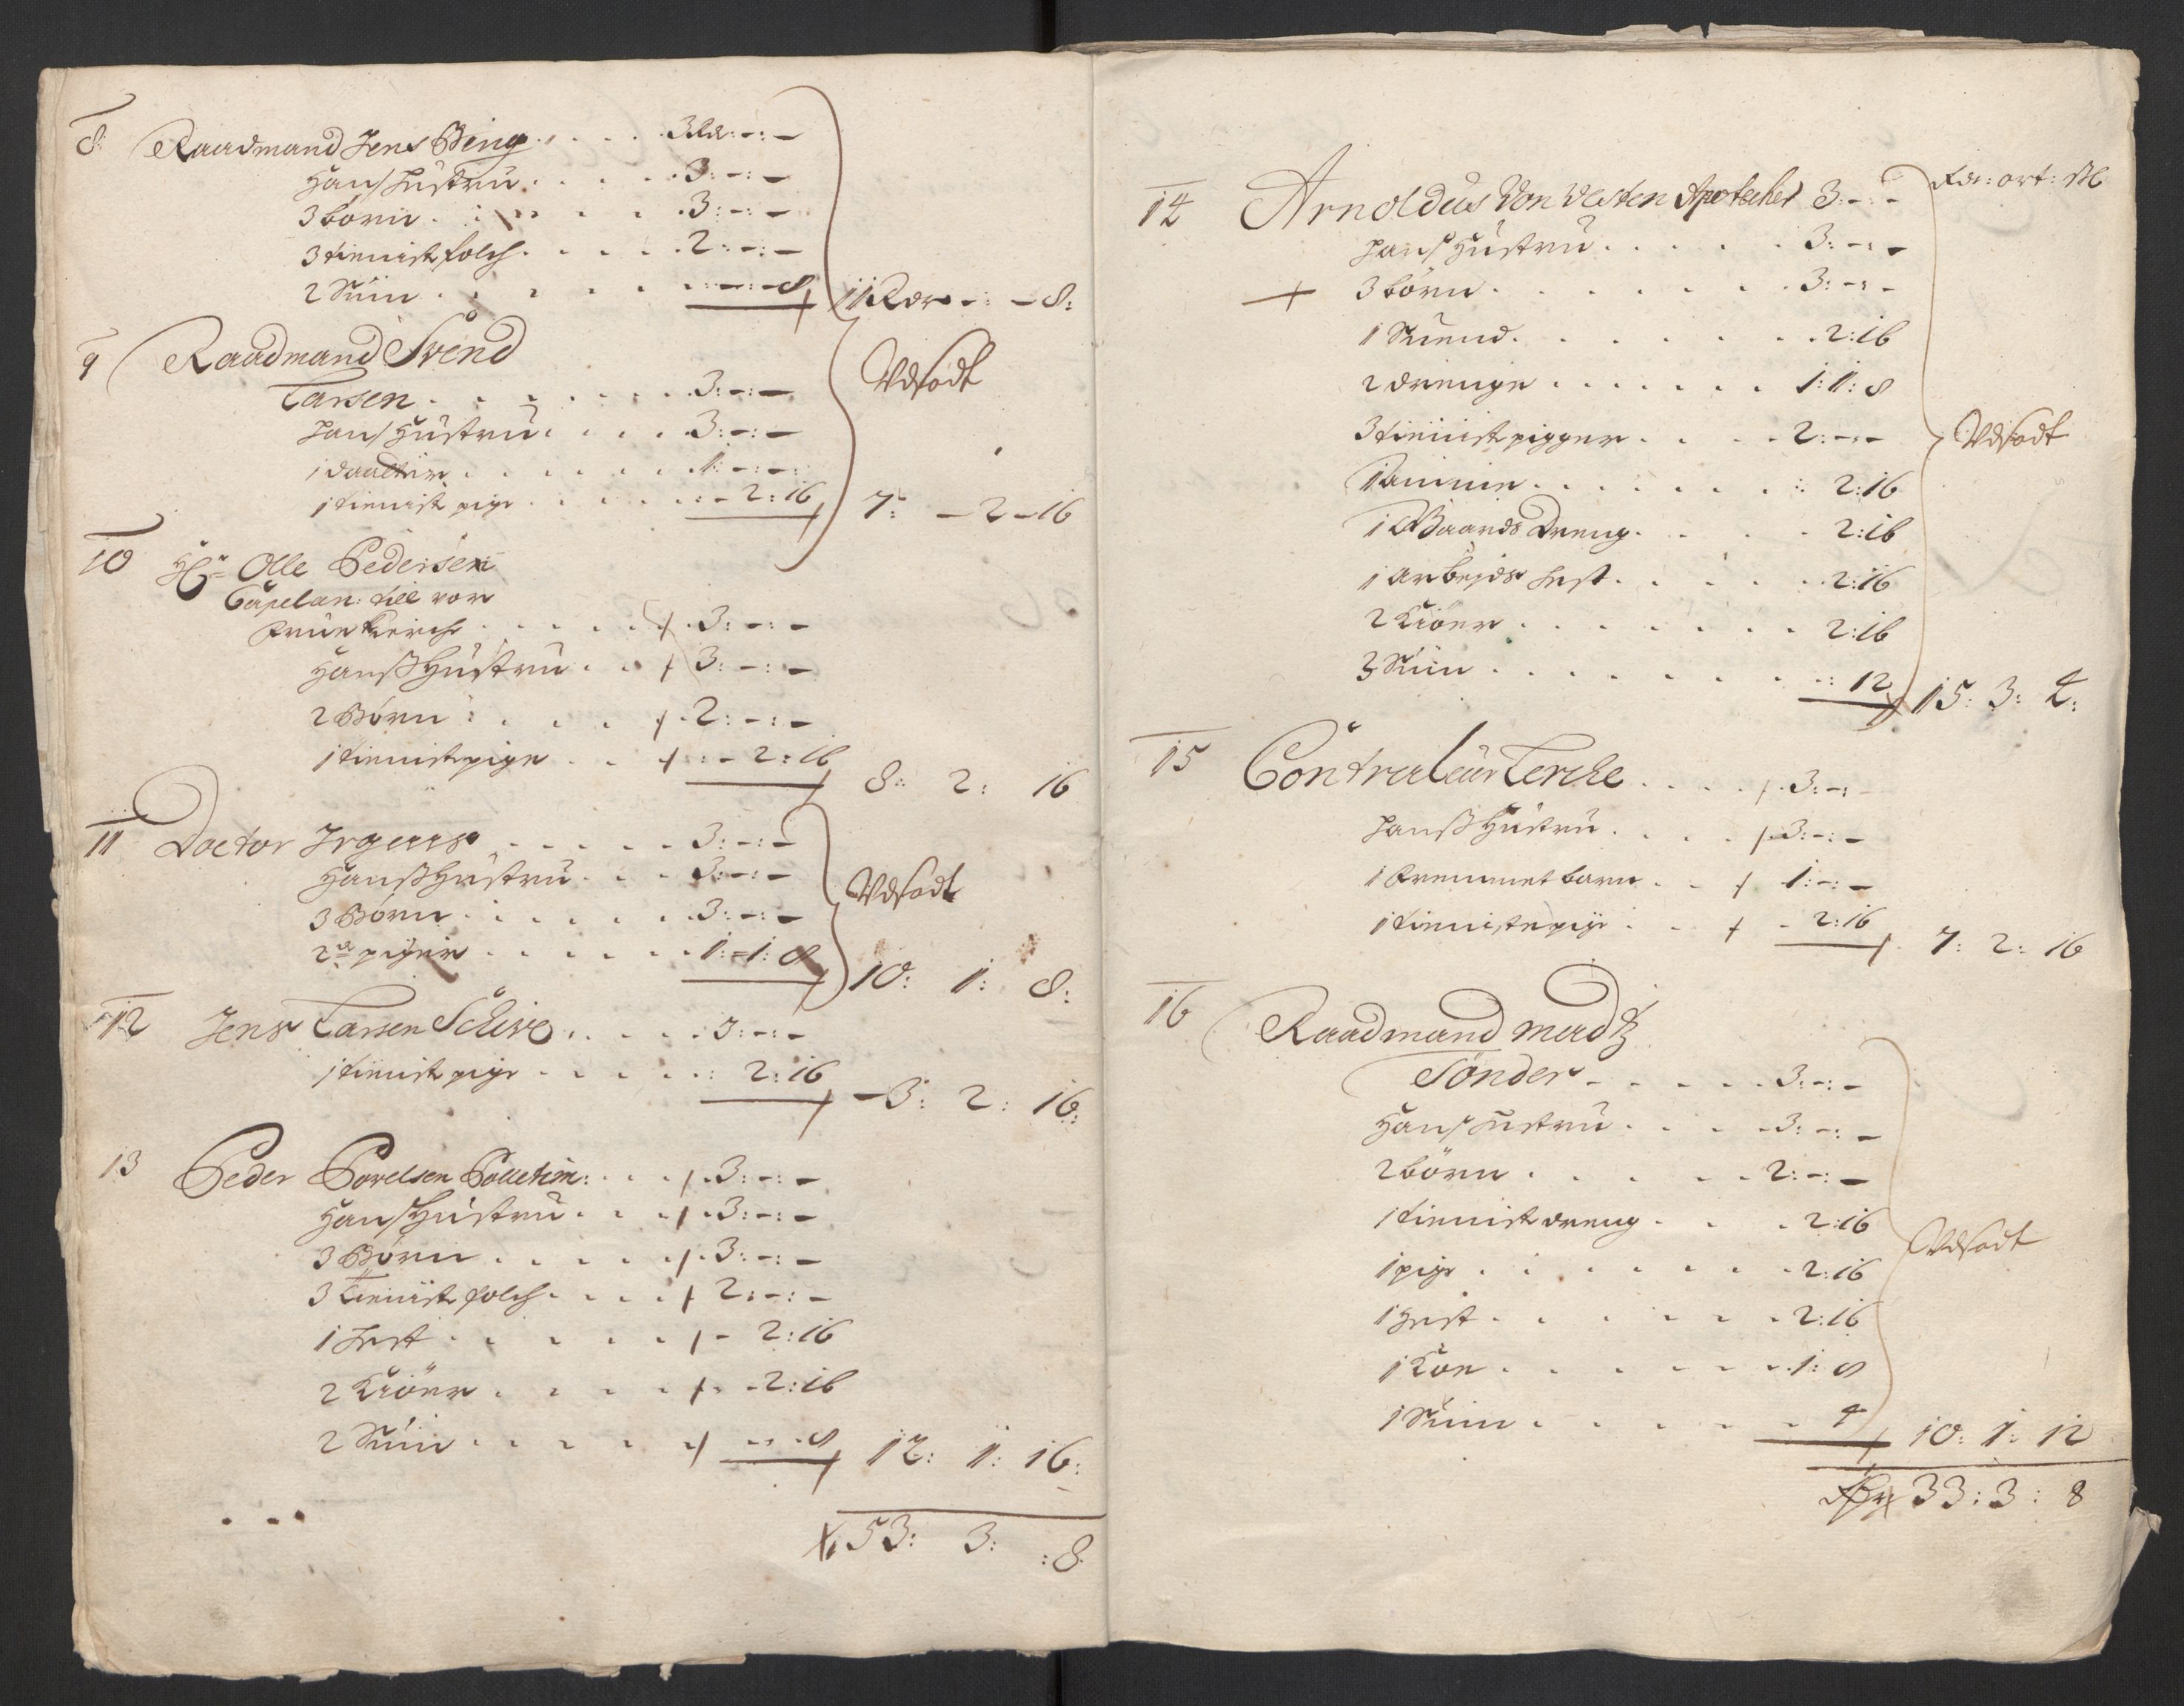 8: Raadmand Jens Bing . . . . 3Rdr: -: -
Hans Hustru . . . . 3: -: -
3 børn . . . . 3: -: -
3 tienist folch . . . . 2: -: -
2 Suin . . . . -: - 8 11 Rdr - : - 8:
9 Raadmand Svend
Larsen . . . . 3: -: -
Hans Hustru . . . . 3: -: -
1 daatter . . . . 1: -: -
1 tienist pige . . . . - 2: 16 7: - 2 - 16
Udsadt
10 Hr: Olle Pedersen
Capelan: till vor
frue Kirche . . . . 3: -: -
Hanß Hustru . . 3: -: -
2 Børn : . . . 2: -: -
1 tienistpige . . : - 2: 16 8: 2: 16
11 Doctor Irgens . . . . 3: -: -
Hanß Hustru . . . 3: -: -
3 Børn . . . . 3: -: -
2de piger . . . . 1: - 1: 8 10: 1: 8:
Udsadt
12 Jens Larsen Schive . . . . 3: -: -
1 tienist pige . . . . : 2: 16 - 3: 2: 16:
13 Peder Povelsen : . . . 3: -: -
Hans Hustru . . . 3: -: -
3 Børn . . . . 3: -: -
3 tienist folch . . . . 2: -: -
1 Hest . . . . - 2: 16
2 Kiöer . . . . - 2: 16
2 Suin . . . . - 8 12: 1: 16:
53: 3: : 8
Rdr: ort: sk
14 Arnoldus Von Westen Apotecher 3: - : -
Hans Hustru . . . . 3: -: -
3 börn . . . . 3: -: -
1 Suend . . . . 2: 16
2 drenge . . . . 1: 1: 8
3 tienist pigger . . . . 2: -: -
1 Amme . . . . : 2: 16
1 Gaards Dreng . . . . 2: 16
1 arbejds hest . . . . 2: 16
2 Kiöer . . . . 2: 16
3 Suin . . . . : 12 15: 3: 4:
Udsadt
15 Contraleur Lerche . . . . 3: -:
Hanß Hustru . . . . 3: -: -
1 fremmet barn . . 1: -: -
1 tieniste pige . . - 2: 16 7: 2: 16
16 Raadmand Madtz
Sönder - . . . . 3: -: -
Hans Hustru . . . . 3: -: -
2 børn . . . . 2: -: -
1 tienist dreng . . . 2: 16
1 pige . . . . 2: 16
1 Hest . . . . 2: 16
1 Koe . . . . 1: 8
1 Suin . . . . 4 10: 1: 12
Udsadt
33: 3: 8